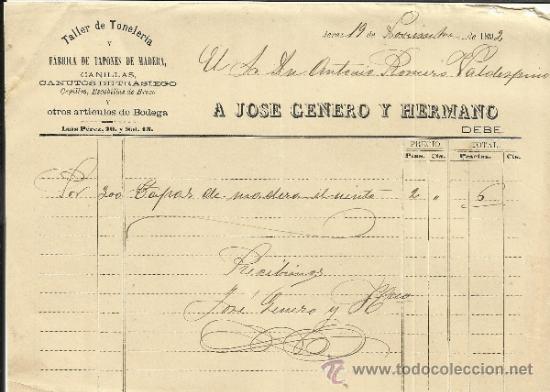 Taller de Tonelería
Y
FÁBRICA DE TAPONES DE MADERA,
CANILLAS,
CANUTOS DE TRASIEGO
Cepillos, Escobillas de Brezo
Y
otros artículos de Bodega
Luis Perez, 10, y Sol, 15.
Jerez 19 de Noviembre de 1892
El Sr. Dn Antonio Romero Valdespino
A JOSE GENERO Y HERMANO
DEBE
PRECIO TOTAL
Pesas. Cts. Pesetas. Cts.
Por 300 Tapas de madera el ciento 2 " 6
Recibimos
José Genero y Hno
todocoleccion.net